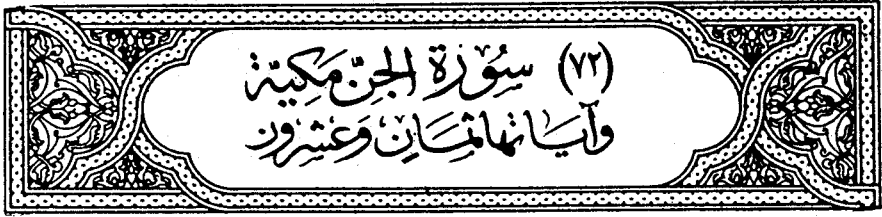 (٧٢) سُوْرَة الجِنّ مَكيَّة
وَآيَاتهَا ثمَانِ وَعشِرُون